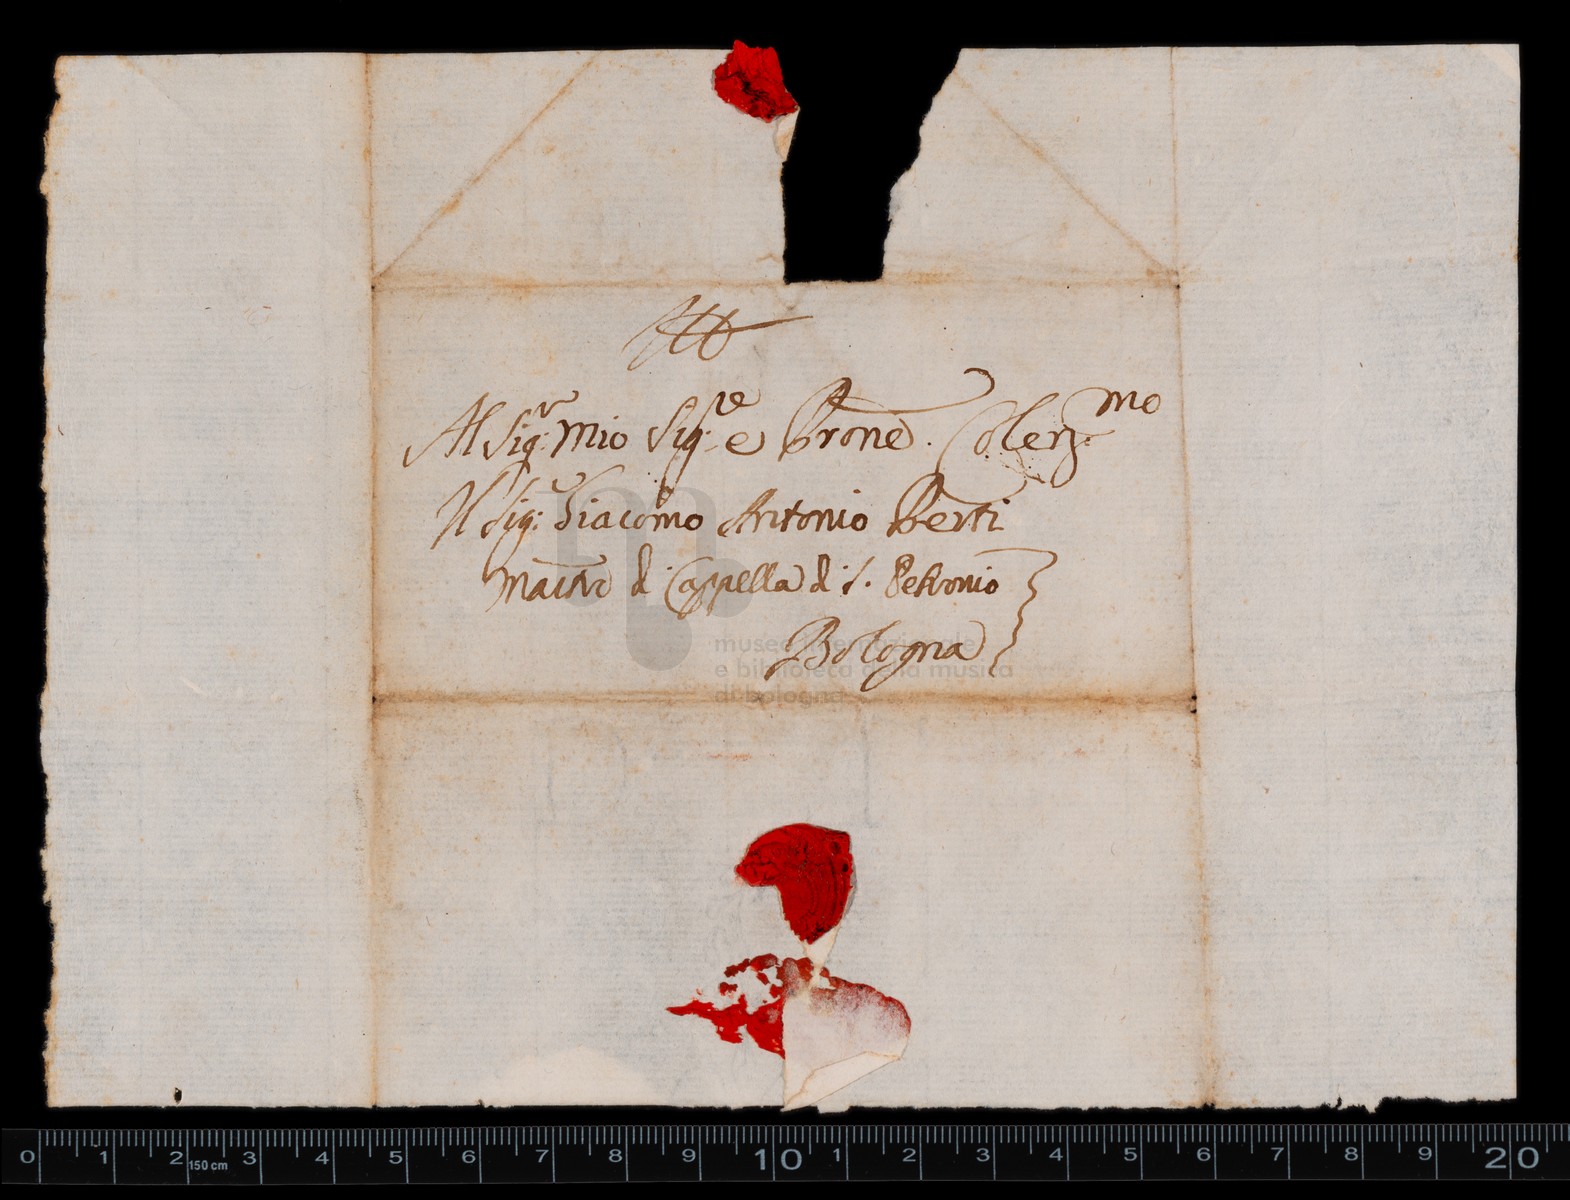 Al Sig.r Mio Sig.re e Prone. Colen.mo
Il Sig.r Giacomo Antonio Perti
Maestro di Cappella di S. Petronio
Bologna
museo internazionale
e biblioteca della musica
di bologna
0 1 2 150 cm 3 4 5 6 7 8 9 10 1 2 3 4 5 6 7 8 9 20